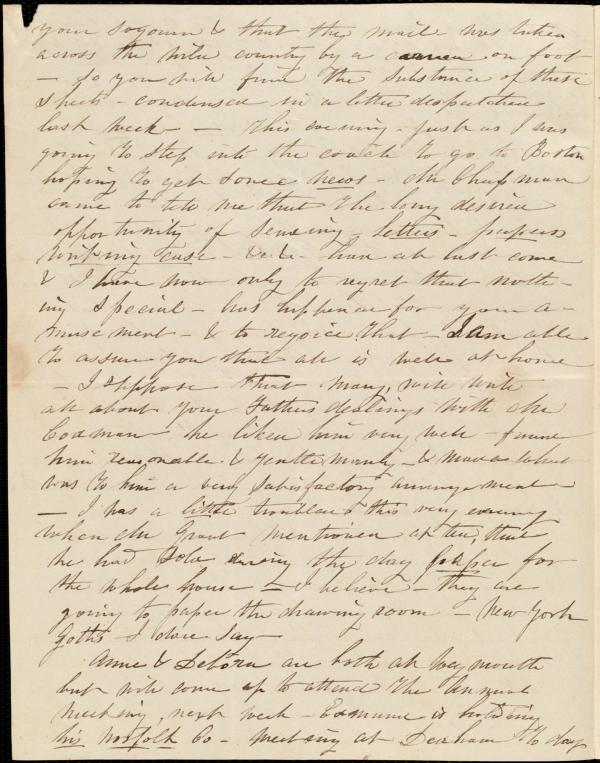 your sojourn & that the mail was taken
across the wide country by a on foot
— so you will find the substance of these
sheets — condensed in a letter despatched
last week — — This evening — just as I was
going to step into the coach to go to Boston
hoping to get some news — Mr Chapman
came to tell me that the long desired
opportunity of sending — letters — papers
writing case — &c &c — has at last come
& I have now only to regret that noth-
ing special — has happened for your a-
musement — & to rejoice that — I am able
to assure you that all is well at home
— I suppose that Mary, will write
all about your Fathers dealings with Mr
Codman — he liked him very well — found
him reasonable & gentlemanly — & made what
was to him a very satisfactory arrangement —
— I was a little troubled this very evening
when Mr Grant mentioned at tea, that
he had sold during the day paper for
the whole house — I believe — they are
going to paper the drawing room — New York
Goths I dare say —
Anne & Debora are both at Weymouth
but will come up to attend the Annual
meeting, next week — Edmund is holding
his Norfolk Co — meeting at Dedham to day